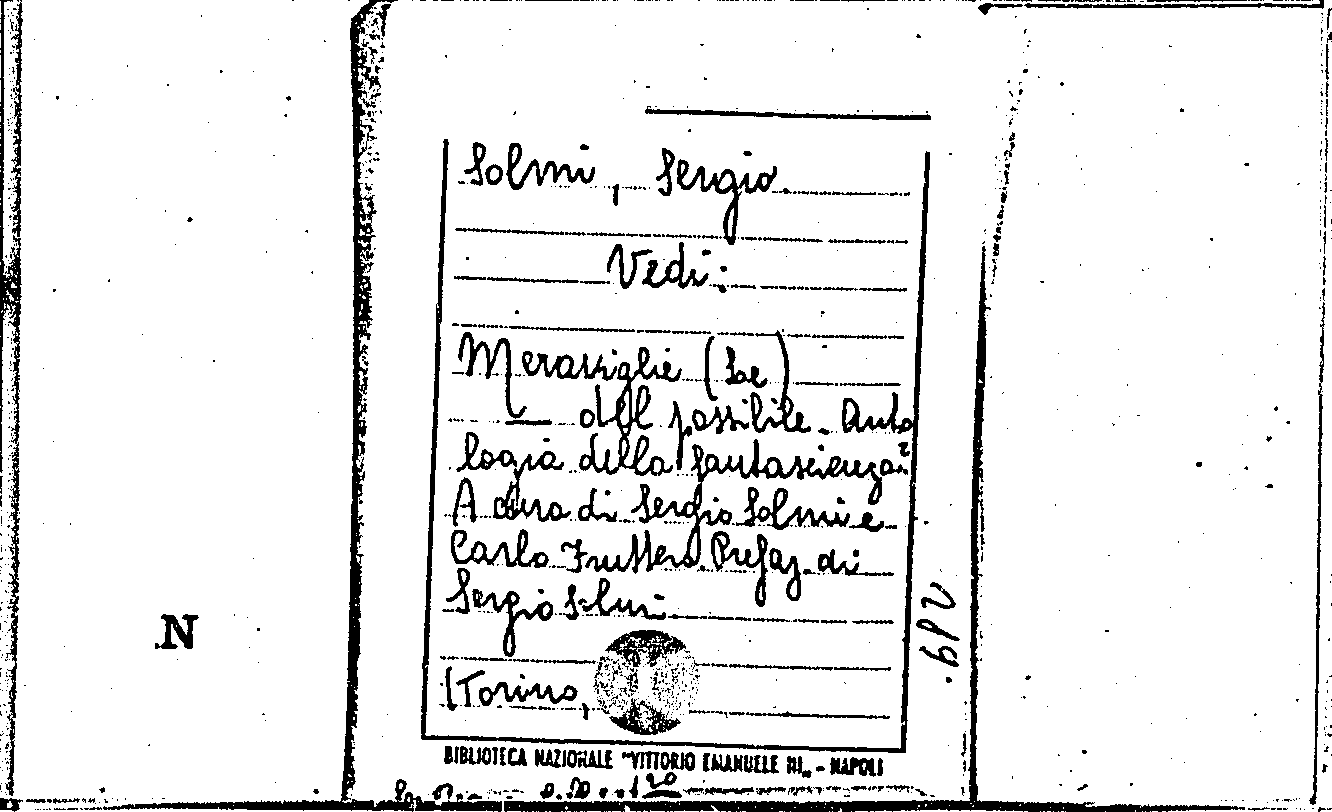 Solmi, Sergio
Vedi:
Meraviglie (Le)
del possibile. Anto
logia della fantascienza.
A cura di Sergio Solmi e
Carlo Fruttero. Prefaz. di
Sergio Solmi
(Torino,
BIBLIOTECA NAZIONALE "VITTORIO EMANUELE III" - NAPOLI
N